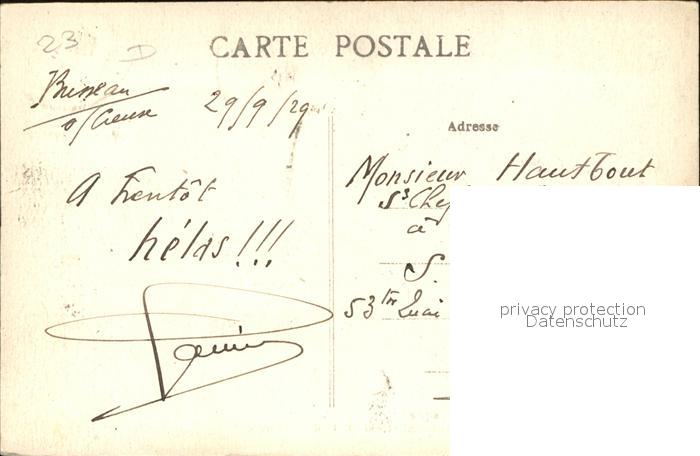 23 D
CARTE POSTALE
Busseau
s/Creuse
29/9/29
A bientôt
hélas !!!
Adresse
Monsieur Hautbout
à
S.
53 Quai
privacy protection
Datenschutz